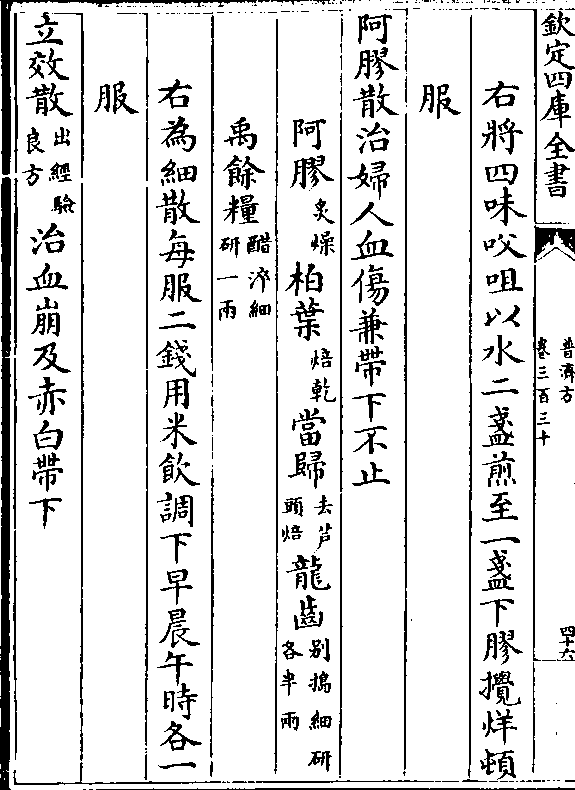 欽定四庫全書
普濟方
卷三百三十
四十六
右將四味㕮咀以水二盞煎至一盞下膠攪烊頓
服
阿膠散治婦人血傷兼帶下不止
阿膠炙燥柏葉焙乾當歸去芦頭焙龍齒别搗細研各半兩
禹餘糧醋淬細研一兩
右為細散每服二錢用米飲調下早晨午時各一
服
立效散出經驗良方治血崩及赤白帶下